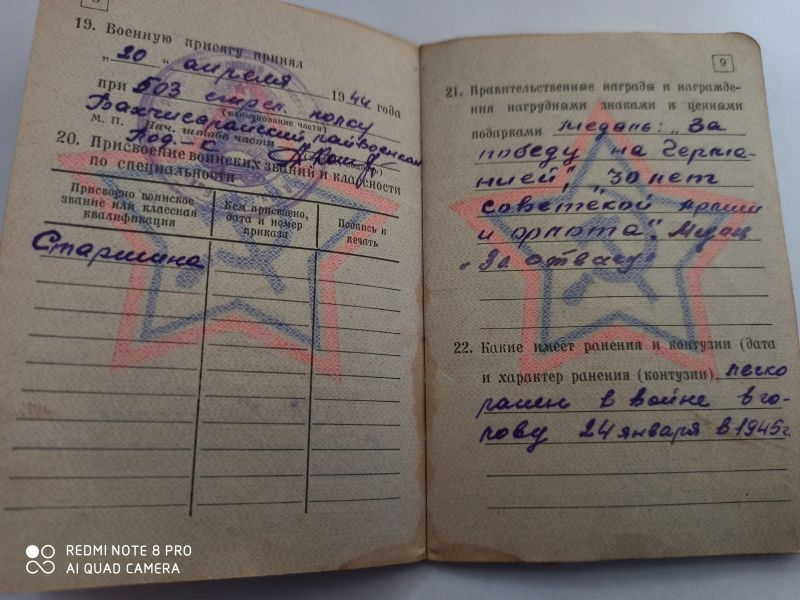 19. Военную присягу принял
„20“ апреля 1944 года
при 503 стрел. полку
(наименование части)
Бахчисарайский райвоенком
М. П. Нач. штаба части
Под-к
20. Присвоение воинских званий и классности
по специальности
Присвоено воинское звание или классная квалификация
Кем присвоено, дата и номер приказа
Подпись и печать
Старшина
9
21. Правительственные награды и награжде-
ния нагрудными знаками и ценными
подарками медаль: „За
победу на Герма-
нией", „30 лет
советской армии
и флота". Медаль
„За отвагу"
22. Какие имеет ранения и контузии (дата
и характер ранения (контузии) легко
ранен в войне в го-
лову 24 января в 1945 г.
REDMI NOTE 8 PRO
AI QUAD CAMERA